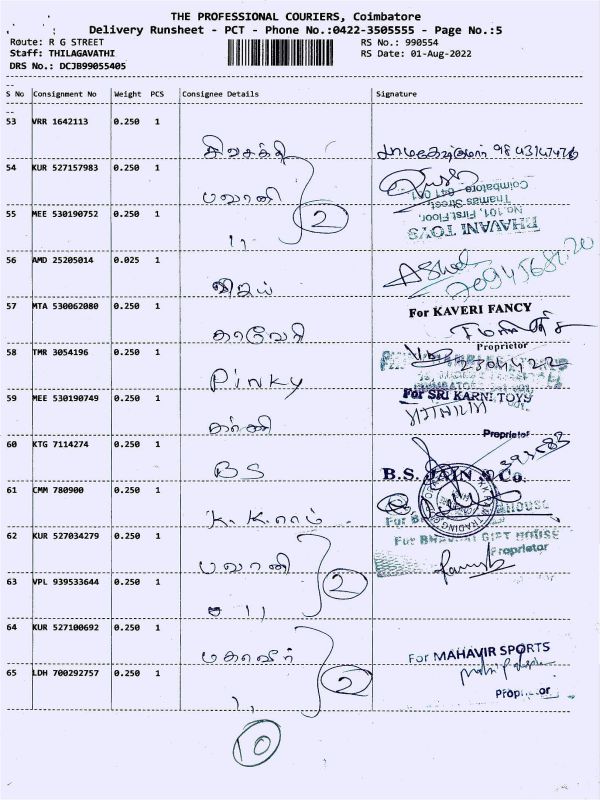 THE PROFESSIONAL COURIERS, Coimbatore
Delivery Runsheet - PCT - Phone No.:0422-3505555 - Page No.:5
Route: R G STREET
RS No.: 990554
Staff: THILAGAVATHI
RS Date: 01-Aug-2022
DRS No.: DCJB99055405
S No Consignment No Weight PCS Consignee Details Signature
53 VRR 1642113 0.250 1
சிவசக்தி
54 KUR 527157983 0.250 1
பவானி
Coimbatore 641 001
Thamas Street,
No.101, First Floor,
BHAVANI TOYS
55 MEE 530190752 0.250 1
11
2
56 AMD 25205014 0.025 1
விஜய்
57 MTA 530062080 0.250 1
For KAVERI FANCY
காவேரி
Proprietor
58 TMR 3054196 0.250 1
Pinky
59 MEE 530190749 0.250 1
For SRI KARNI TOYS
கர்ணி
Proprietor
60 KTG 7114274 0.250 1
BS
B.S. JAIN & Co.
61 CMM 780900 0.250 1
K.K.ராம்
62 KUR 527034279 0.250 1
For BHAVANI GIFT HOUSE
Proprietor
பவானி
63 VPL 939533644 0.250 1
2
11
64 KUR 527100692 0.250 1
மகாவீர்
For MAHAVIR SPORTS
65 LDH 700292757 0.250 1
2
11
10